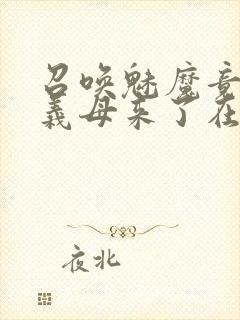 召唤魅魔竟
义母来了在
夜北